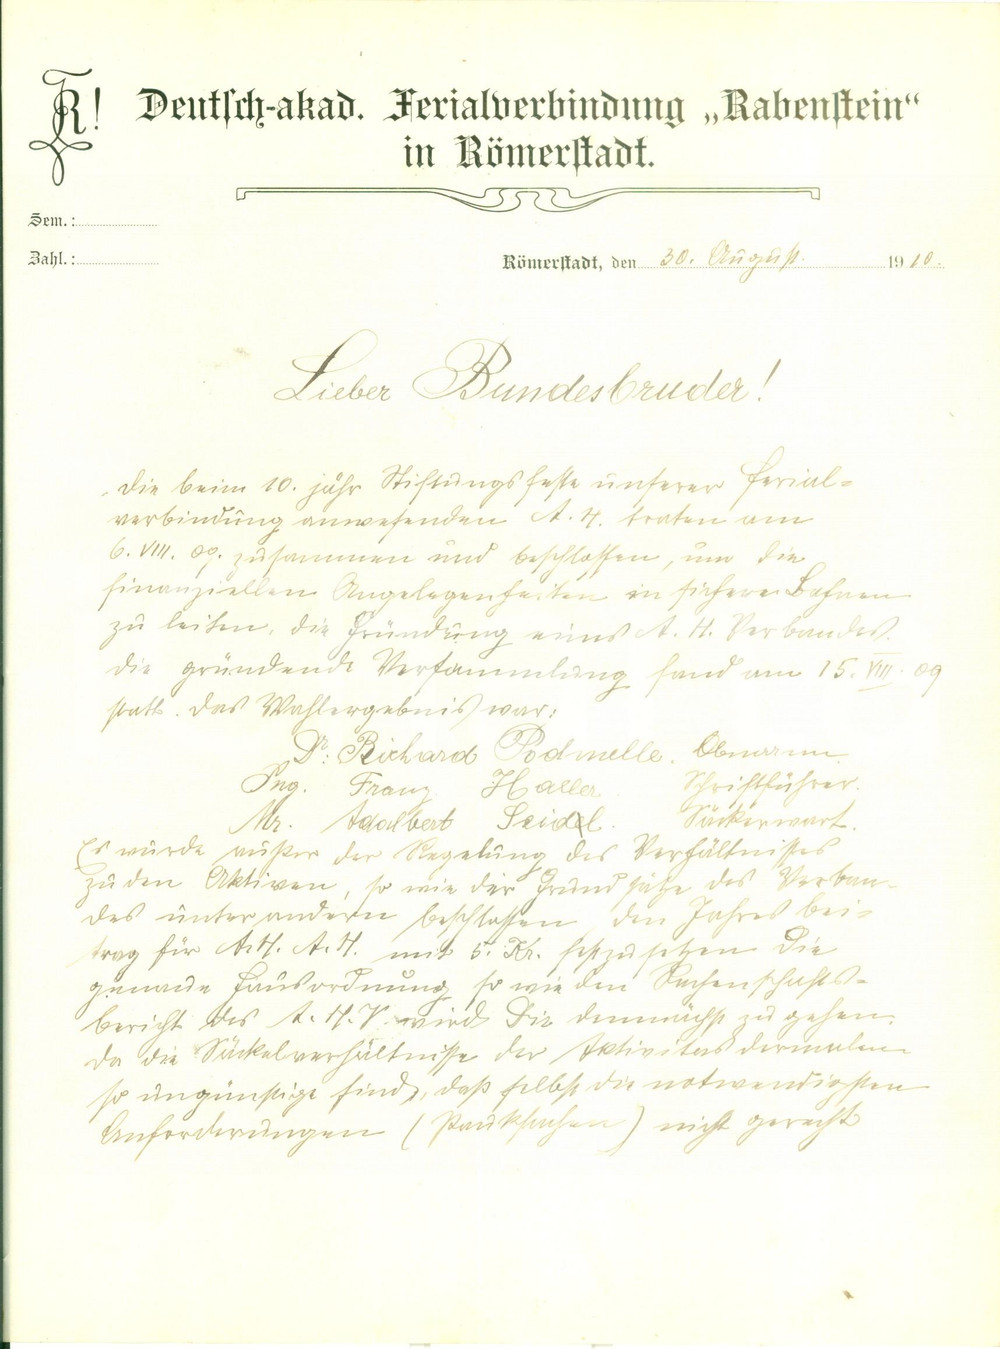 R!
Deutsch-akad. Ferialverbindung „Rabenstein“
in Römerstadt.
Sem.:
Zahl.:
Römerstadt, den 30. August. 1910.
Lieber Bundesbruder!
Die beim 10. jähr Stiftungsfeste unserer Ferial=
verbindung anwesenden A. H. traten am
6. VIII. 09. zusammen und beschlossen, um die
finanziellen Angelegenheiten in sichere Bahnen
zu leiten, die Gründung eines A. H. Verbandes.
Die gründende Versammlung fand am 15. VIII. 09
statt. Das Wahlergebnis war:
Dr. Richard Podmelle. Obmann.
Ing. Franz Haller. Schriftführer.
Mr. Adalbert Seidel. Säckelwart.
Es wurde außer der Regelung des Verhältnisses
zu den Aktiven, so wie der Grundsätze des Verban-
des unter andern beschlossen den Jahresbei=
trag für A. H. A. H. mit 5. Kr. festzusetzen Die
genaue Hausordnung so wie den Rechenschafts=
bericht des A. H. V. wird Dir demnächst zu gehen.
Da die Säckelverhältnisse der Aktivitas dermalen
so ungünstige sind, daß selbst die notwendigsten
Anforderungen (Pauksachen) nicht gerecht